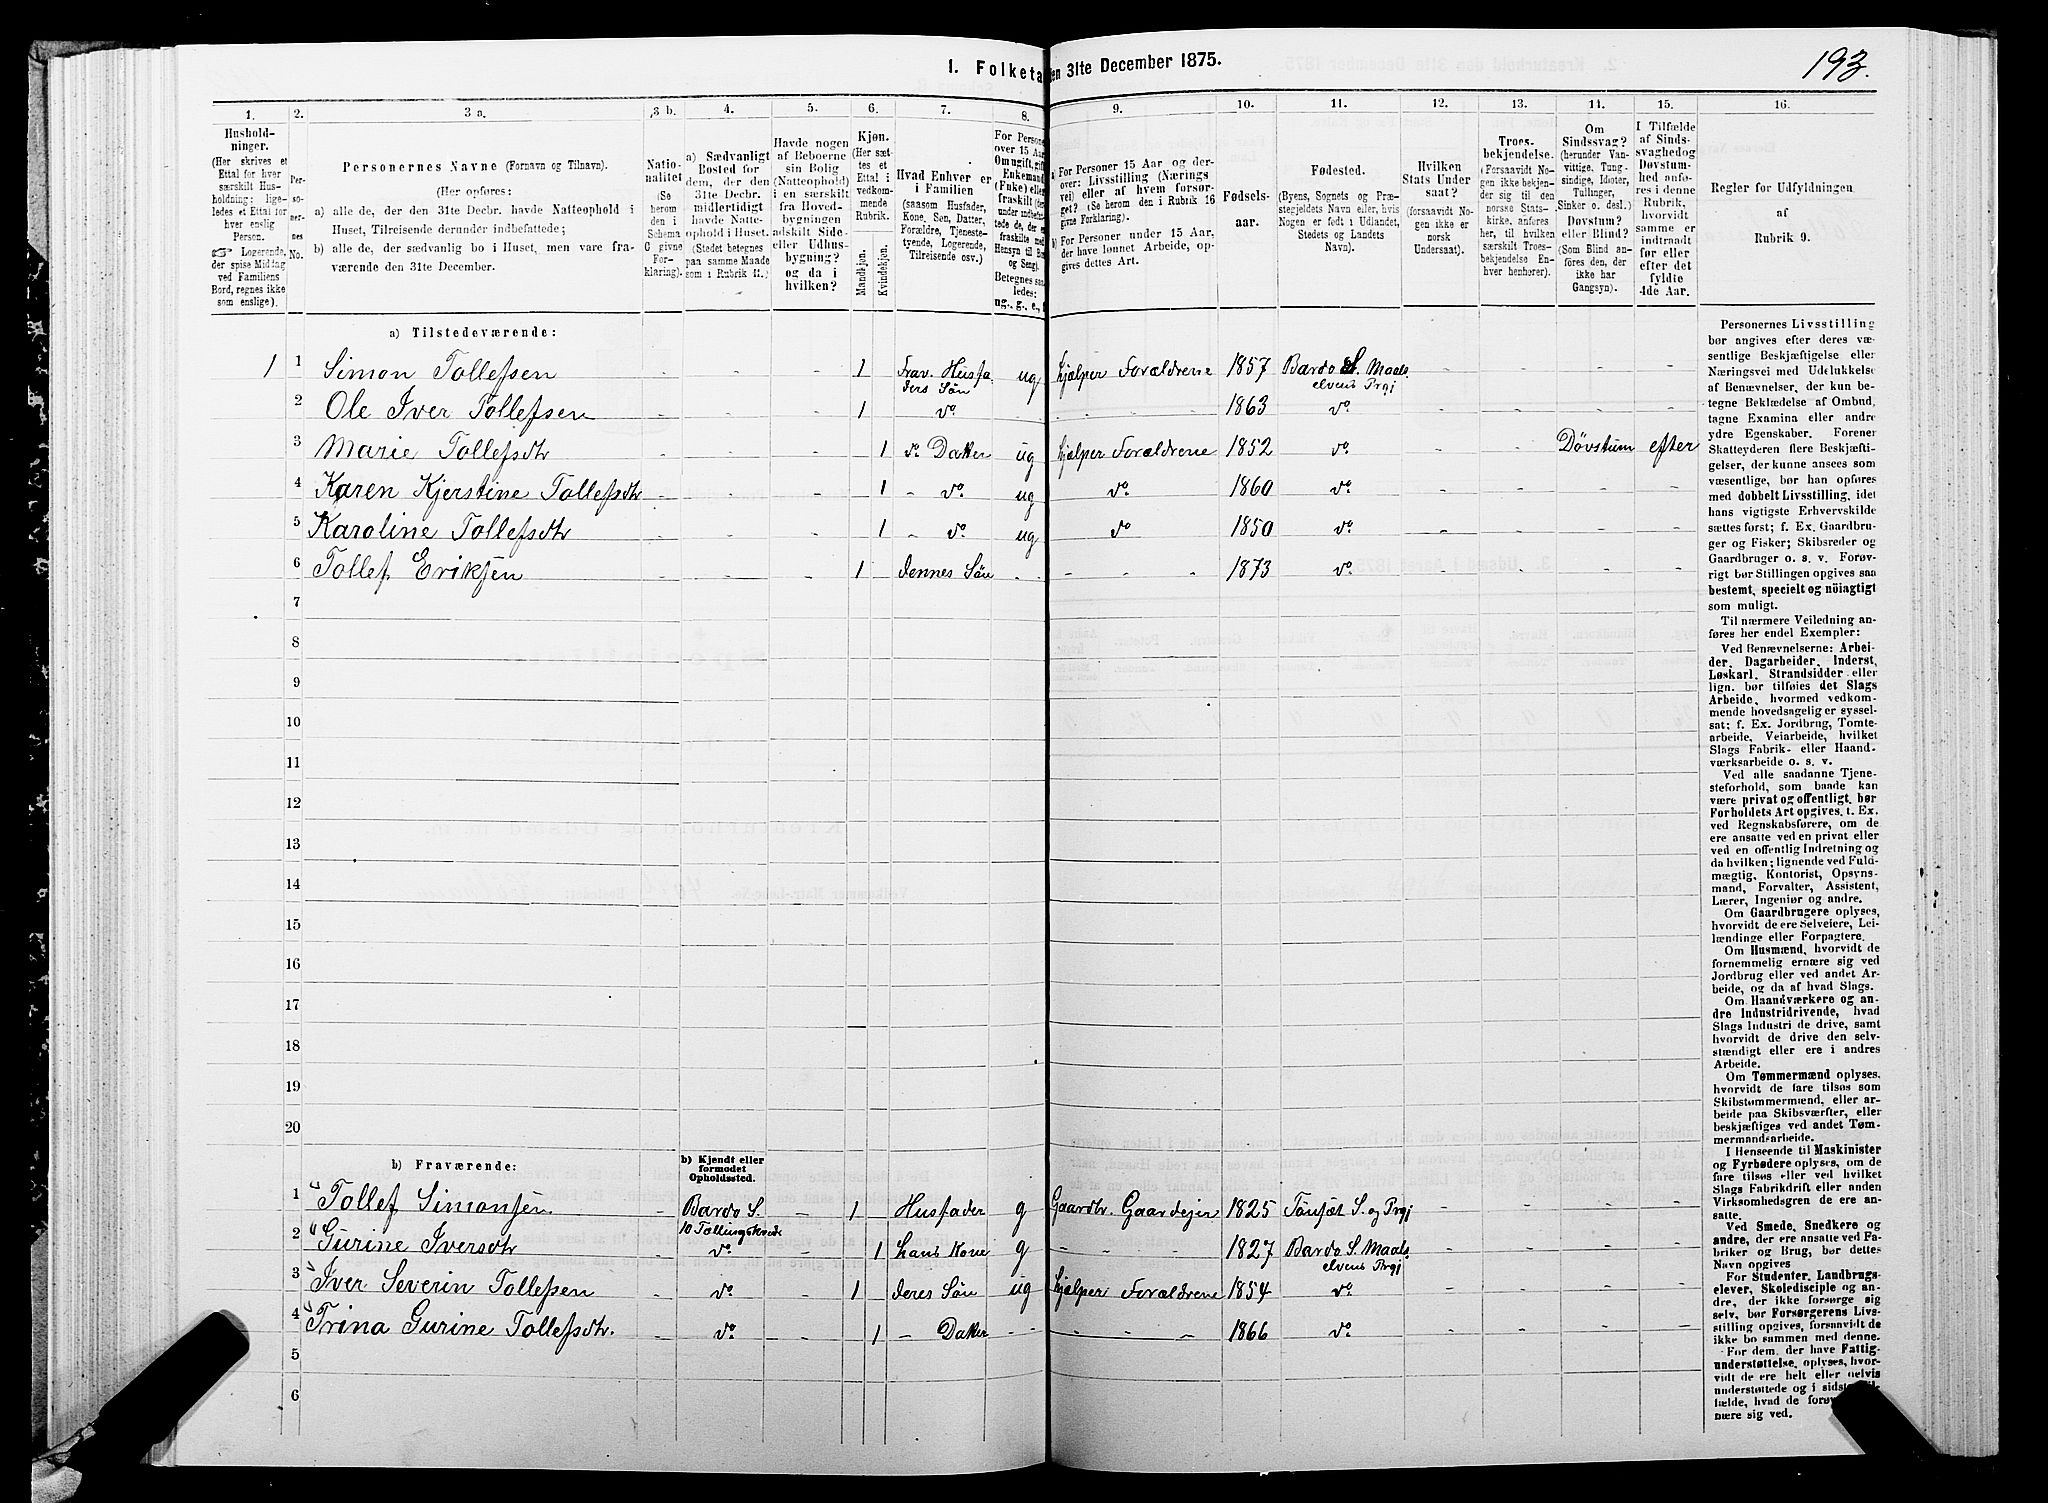 193.
1. Folketa en 31te December 1875.
1. 2. 3 a. 3 b. 4. 5. 6. 7. 8. 9. 10. 11. 12. 13. 14. 15. 16.
Hushold-
ninger.
(Her skrives et
Ettal for hver
særskilt Hus-
holdning; lige-
ledes et Ettal for
hver enslig
Person.
☞ Logerende,
der spise Middag
ved Familiens
Bord, regnes ikke
som enslige).
Per-
so-
ner-
nes
No.
Personernes Navne (Fornavn og Tilnavn).
(Her opføres:
a) alle de, der den 31te Decbr. havde Natteophold i
Huset, Tilreisende derunder indbefattede;
b) alle de, der sædvanlig bo i Huset, men vare fra-
værende den 31te December.
Natio-
nalitet
(Se
herom
den i
Schema
G givne
For-
klaring).
a) Sædvanligt
Bosted for
dem, der den
31te Decbr.
midlertidigt
havde Natte-
ophold i Huset.
(Stedet betegnes
paa samme Maade
som i Rubrik 11.)
Havde nogen
af Beboerne
sin Bolig
(Natteophold)
i en særskilt
fra Hoved-
bygningen
adskilt Side-
eller Udhus-
bygning?
og da i
hvilken?
Kjøn.
(Her sæt-
tes et
Ettal i
vedkom-
mende
Rubrik.
Mandkjøn.
Kvindekjøn.
Hvad Enhver er
i Familien
(saasom Husfader,
Kone, Søn, Datter,
Forældre, Tjeneste-
tyende, Logerende,
Tilreisende osv.)
For Persone
over 15 Aar
Om ugift, gift
Enkemand
(Enke) elle
fraskilt
Betegnes saa
ledes:
ug., g., e., f
a) For Personer 15 Aar og der-
over: Livsstilling (Nærings-
vei) eller af hvem forsør-
get? (Se herom den i Rubrik 16
givne Forklaring).
b) For Personer under 15 Aar,
der have lønnet Arbeide, op-
gives dettes Art.
Fødsels-
aar.
Fødested.
(Byens, Sognets og Præ-
stegjeldets Navn eller, hvis
Nogen er født i Udlandet,
Stedets og Landets
Navn).
Hvilken
Stats Under
saat?
(forsaavidt No-
gen ikke er
norsk
Undersaat).
Troes-
bekjendelse.
(Forsaavidt No-
gen ikke bekjen-
der sig til den
norske Stats-
kirke, anføres
her, til hvilken
særskilt Troes-
bekjendelse En-
hver henhører).
Om
Sindssvag?
(herunder Van-
vittige, Tung-
sindige, Idioter,
Tullinger,
Sinker o. desl.)
Døvstum?
eller Blind?
(Som Blind an-
føres den, der
ikke har
Gangsyn).
I Tilfælde
af Sinds-
svaghed og
Døvstum-
hed anfø-
res i denne
Rubrik,
hvorvidt
samme er
indtraadt
før eller
efter det
fyldte
4de Aar.
Regler for Udfyldningen
af
Rubrik 9.
a) Tilstedeværende:
1 1 Simon Tollefsen 1 Frav. Husfa ders Søn ug hjælper Forældrene 1857 Bardo S. Maals elvens Prgj
2 Ole Iver Tollefsen 1 do 1863 do
3 Marie Tollefsdtr 1 do Datter ug hjælper Forældrene 1852 do Døvstum efter
4 Karen Kjerstine Tollefsdtr 1 do ug do 1860 do
5 Karoline Tollefsdtr 1 do ug do 1850 do
6 Tollef Eriksen 1 dennes Søn 1873 do
7
8
9
10
11
12
13
14
15
16
17
18
19
20
b) Fraværende:
b) Kjendt eller
formodet
Opholdssted.
1 Tollef Simonsen Bardo S. 1 Husfader g Gaardbr. Gaardejer 1825 Tönsæt S. og Prgj
2 Gurine Iversdtr do 1 hans Kone g 1827 Bardo S. Maals elvens Prgj
3 Iver Severin Tollefsen do 1 deres Søn ug hjælper Forældrene 1854 do
4 Trina Gurine Tollefsdtr. do 1 Datter 1866 do
5
6
Personernes Livsstilling
bør angives efter deres væ-
sentlige Beskjæftigelse eller
Næringsvei med Udelukkelse
af Benævnelser, der kun be-
tegne Beklædelse af Ombud,
tagne Examina eller andre
ydre Egenskaber. Forener
Skatteyderen flere Beskjæfti-
gelser, der kunne ansees som
væsentlige, bør han opføres
med dobbelt Livsstilling, idet
hans vigtigste Erhvervskilde
sættes først; f. Ex. Gaardbru-
ger og Fisker; Skibsreder og
Gaardbruger o. s. v. Forøv-
rigt bør Stillingen opgives saa
bestemt, specielt og nöiagtigt
som muligt.
Til nærmere Veiledning an-
føres her endel Exempler:
Ved Benævnelserne: Arbei-
der, Dagarbeider, Inderst,
Løskarl, Strandsidder eller
lign. bør tilføies det Slags
Arbeide, hvormed vedkom-
mende hovedsagelig er syssel-
sat; f. Ex. Jordbrug, Tomte-
arbeide, Veiarbeide, hvilket
Slags Fabrik- eller Haand-
værksarbeide o. s. v.
Ved alle saadanne Tjene-
steforhold, som baade kan
være privat og offentligt, bør
Forholdets Art opgives, t. Ex.
ved Regnskabsførere, om de
ere ansatte ved en privat eller
ved en offentlig Indretning og
da hvilken; lignende ved Fuld-
mægtig, Kontorist, Opsyns-
mand, Forvalter, Assistent,
Lærer, Ingeniør og andre.
Om Gaardbrugere oplyses,
hvorvidt de ere Selveiere, Lei-
lændinge eller Forpagtere.
Om Husmænd, hvorvidt de
fornemmelig ernære sig ved
Jordbrug eller ved andet Ar-
beide, og da af hvad Slags.
Om Haandværkere og an-
dre Industridrivende, hvad
Slags Industri de drive, samt
hvorvidt de drive den selv-
stændigt eller ere i andres
Arbeide.
Om Tømmermænd oplyses,
hvorvidt de fare tilsøs som
Skibstømmermænd, eller ar-
beide paa Skibsværfter, eller
beskjæftiges ved andet Tøm-
mermandsarbeide.
I Henseende til Maskinister
og Fyrbødere oplyses, om de
fare tilsøs eller ved hvilket
Slags Fabrikdrift eller anden
Virksomhedsgren de ere an-
satte.
Ved Smede, Snedkere og
andre, der ere ansatte ved Fa-
briker og Brug, bør dettes
Navn opgives
For Studenter, Landbrugs-
elever, Skoledisciple og an-
dre, der ikke forsørge sig
selv, bør Forsørgerens Livs-
stilling opgives, forsaavidt de
ikke bo sammen med denne.
For dem, der have Fattig-
understøttelse, oplyses, hvor-
vidt de ere helt eller delvis
understøttede og i sidste
fælde, hvad de
nære sig ved.